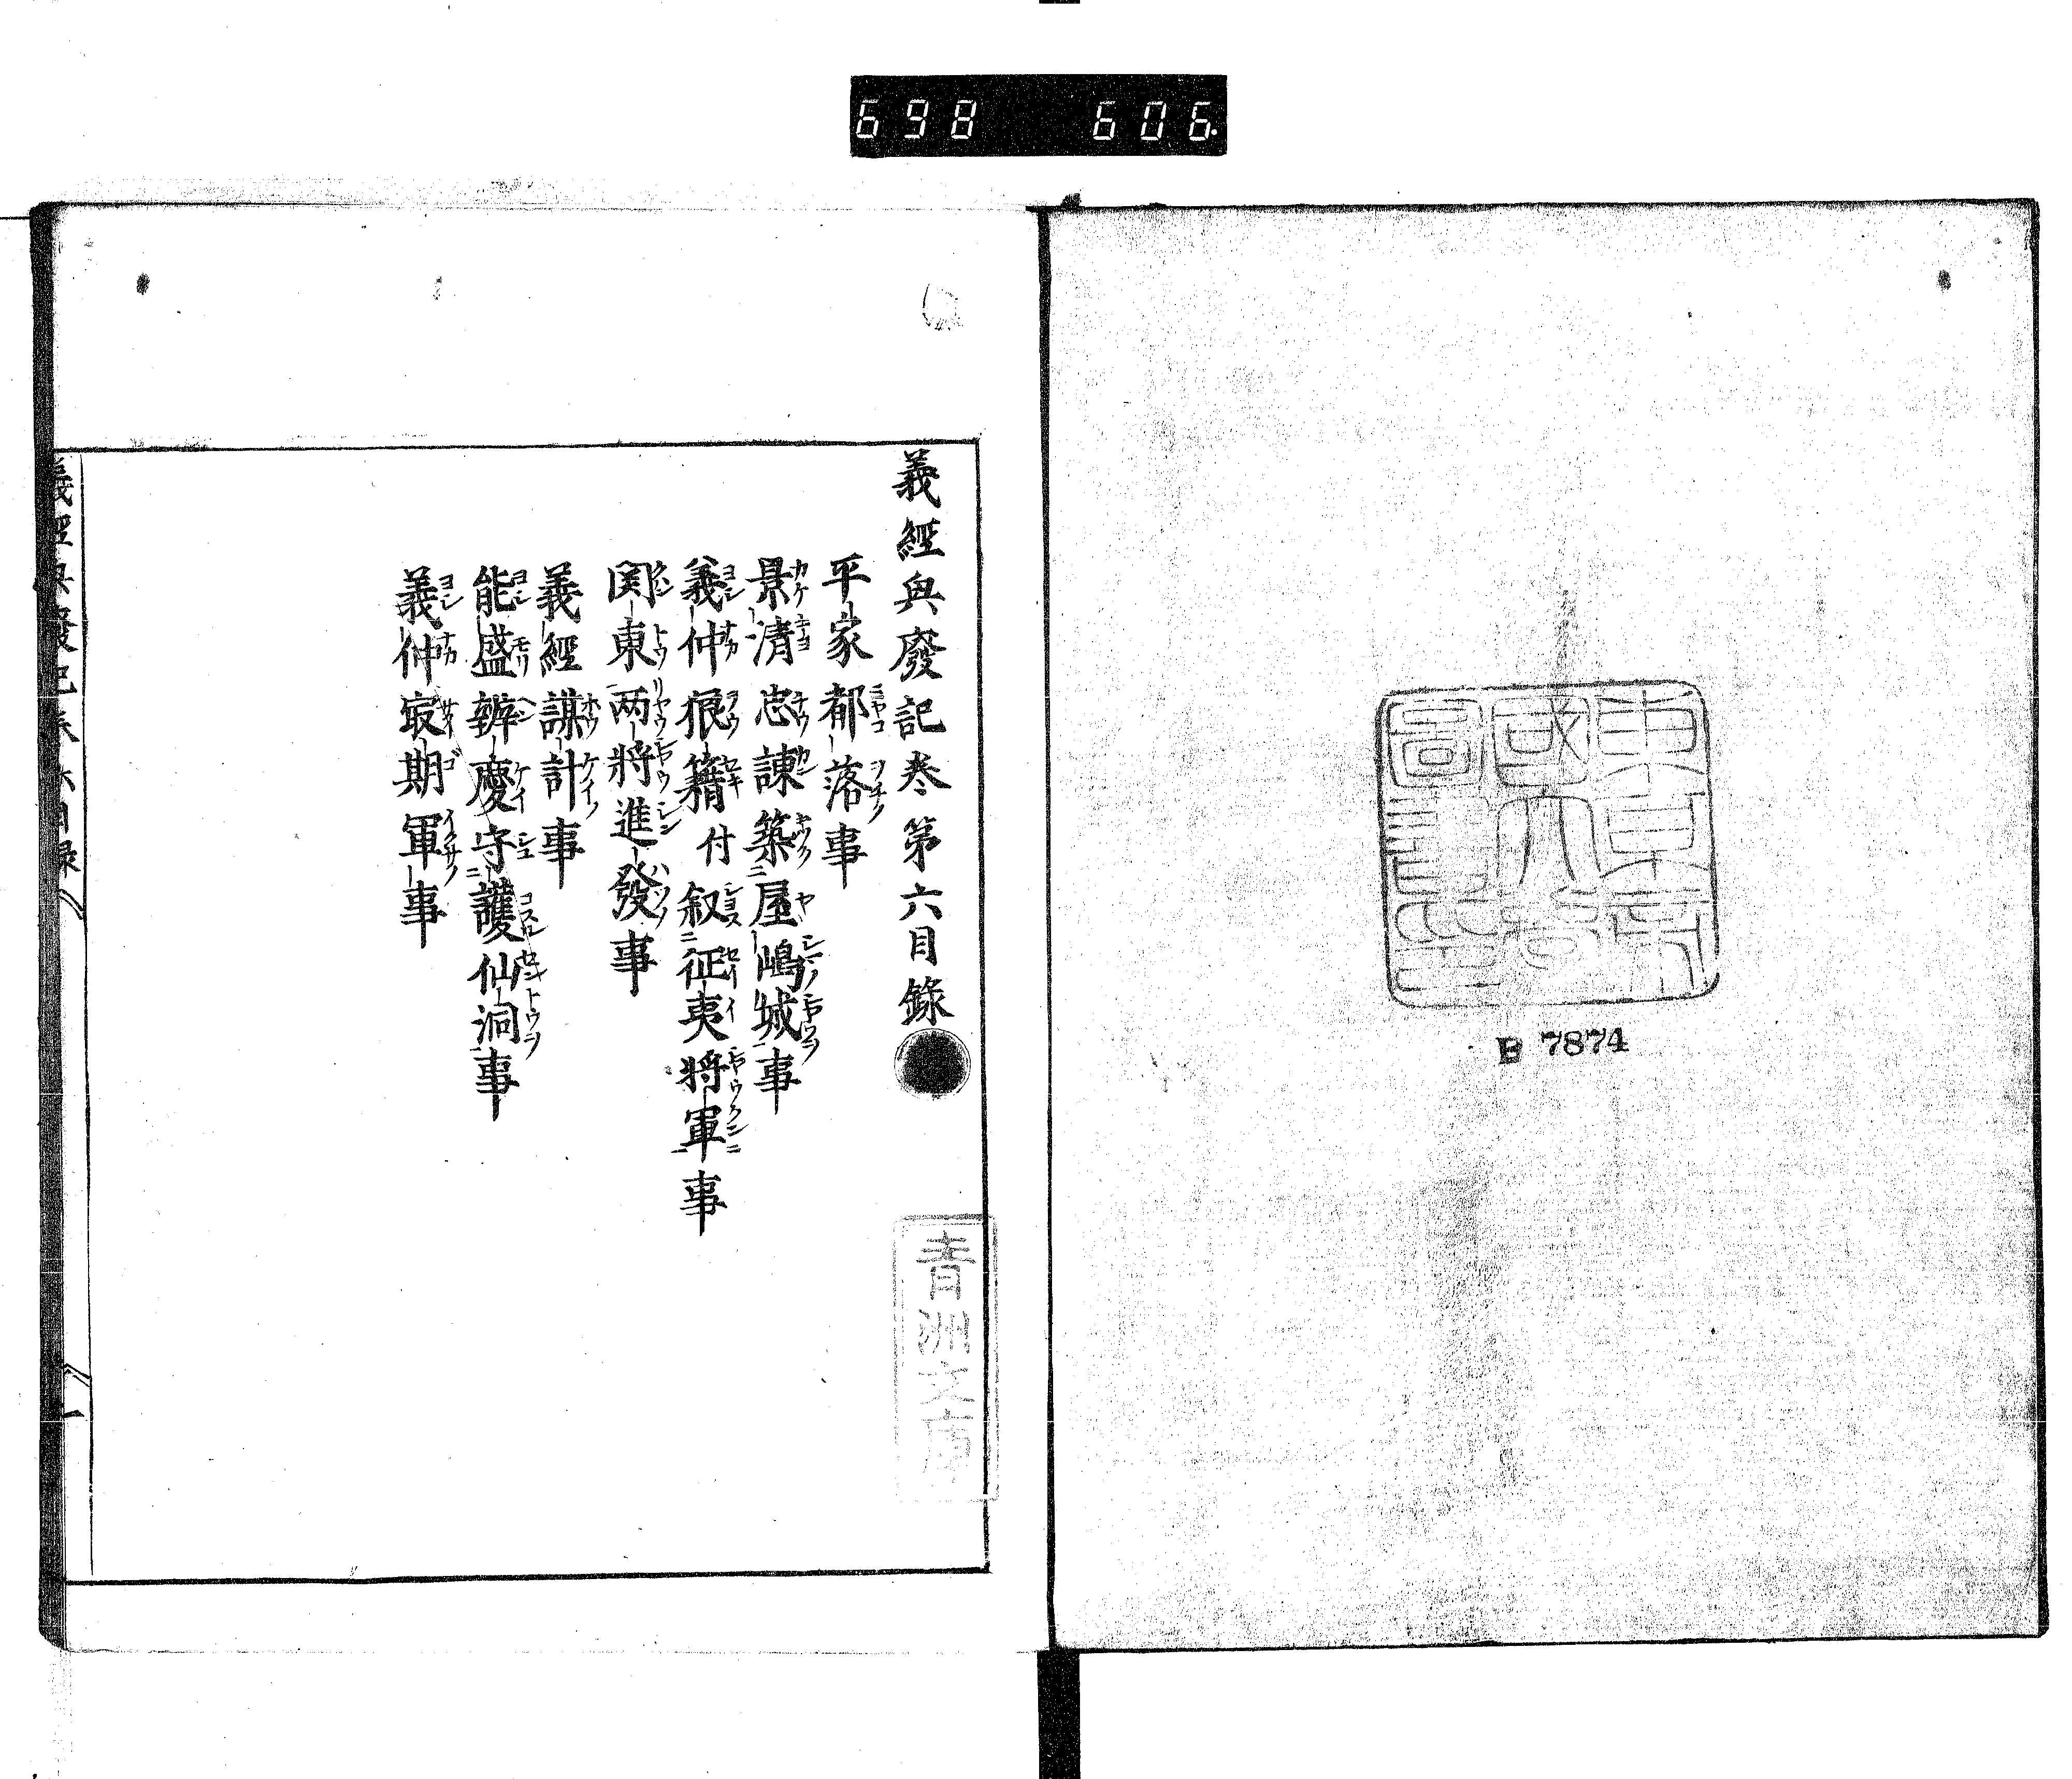 698 606.
東京帝國大學圖書印
B 7874
義經興廢記巻第六目録
平家都落事
景清忠諫築屋嶋城事
義仲狼籍付叙征夷将軍事
関東两将進發事
義經謀計事
能盛辨慶守護仙洞事
義仲冣期軍事
青洲文庫